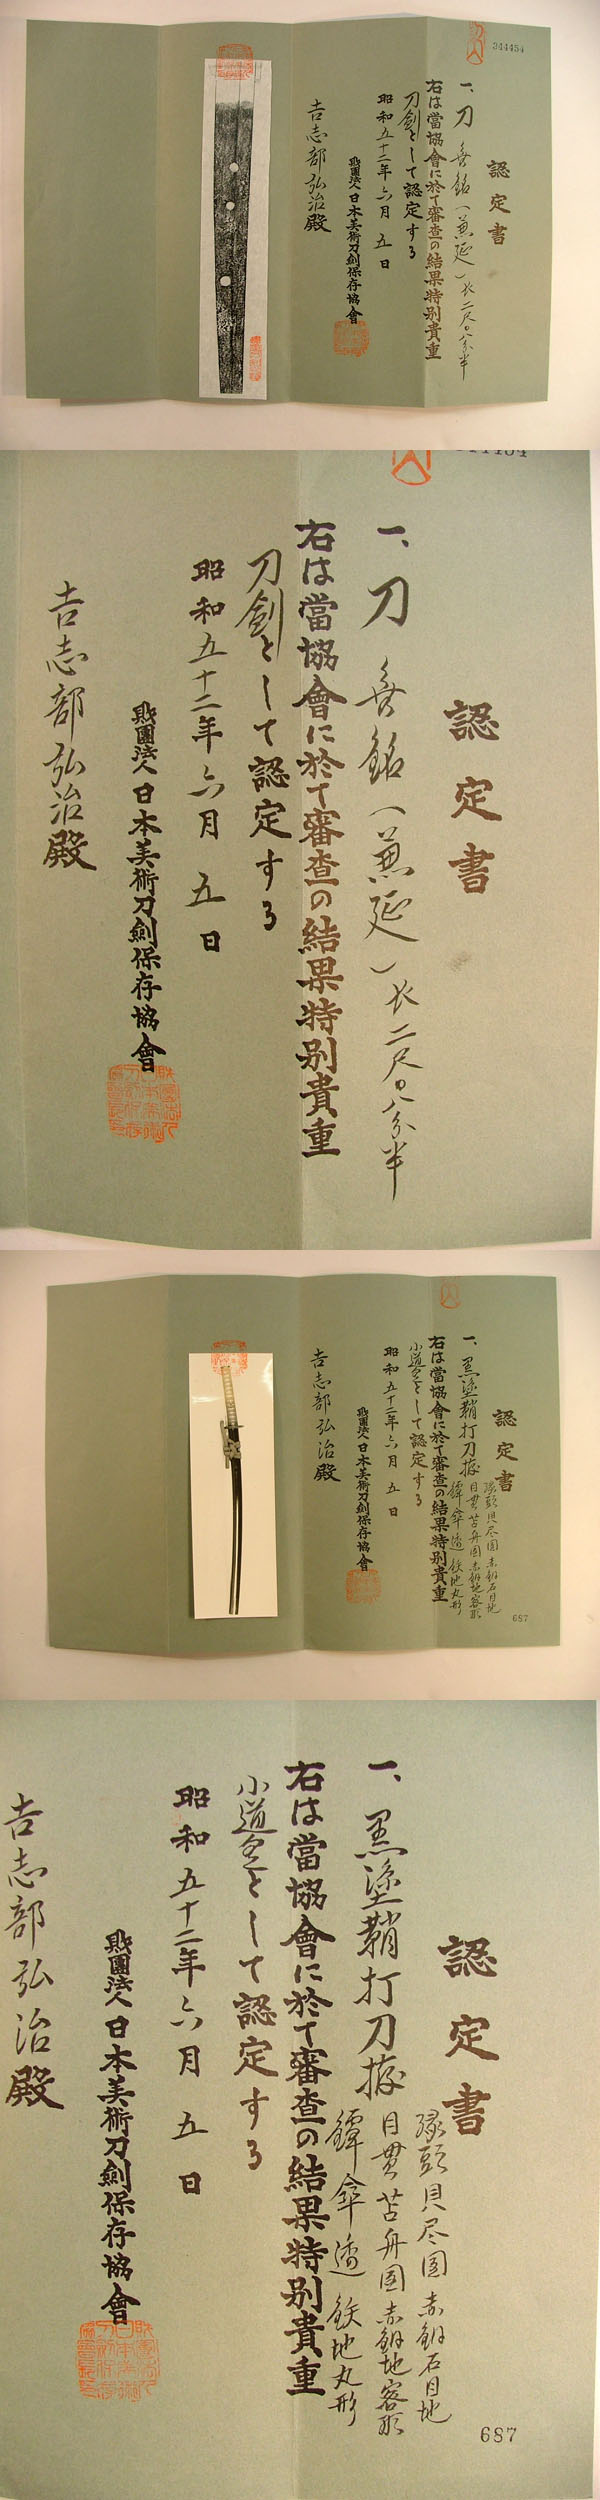 344454
認定書
一、刀 無銘(兼延)長二尺〇八分半
右は當協會に於て審査の結果特別貴重
刀劍として認定する
昭和五十二年六月五日
財團法人日本美術刀劍保存協會
吉志部弘治殿
認定書
一、刀 無銘(兼延)長二尺〇八分半
右は當協會に於て審査の結果特別貴重
刀劍として認定する
昭和五十二年六月五日
財團法人日本美術刀劍保存協會
吉志部弘治殿
認定書
一、黒塗鞘打刀拵
縁頭貝尽図赤銅石目地
目貫苫舟図赤銅地容彫
鐔傘透鉄地丸形
右は當協會に於て審査の結果特別貴重
小道具として認定する
昭和五十二年六月五日
財團法人日本美術刀劍保存協會
吉志部弘治殿
687
認定書
一、黒塗鞘打刀拵
縁頭貝尽図赤銅石目地
目貫苫舟図赤銅地容彫
鐔傘透鉄地丸形
右は當協會に於て審査の結果特別貴重
小道具として認定する
昭和五十二年六月五日
財團法人日本美術刀劍保存協會
吉志部弘治殿
687